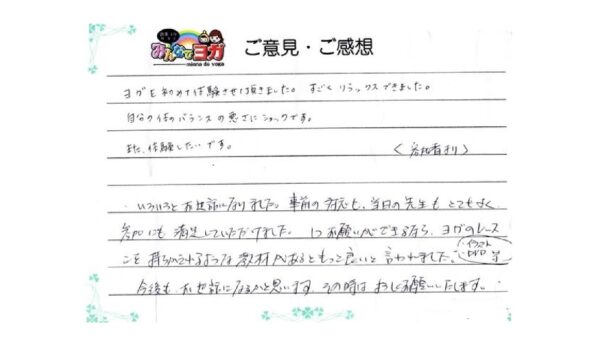 みんなでヨガ
minna de yoga
ご意見・ご感想
ヨガを初めて体験させて頂きました。すごくリラックスできました。
自分の体のバランスの悪さにショックです。
また、体験したいです。
＜参加者より＞
・いろいろとお世話になりました。事前の対応も、当日の先生もとてもよく
参加にも満足していただけました。1つお願いができるなら、ヨガのレース
ンを持ちかえれるような教材があるともっと良いと言われました。
イラスト
DVD 等
今後も、お世話になるかと思います。その時はよろしくお願いいたします。